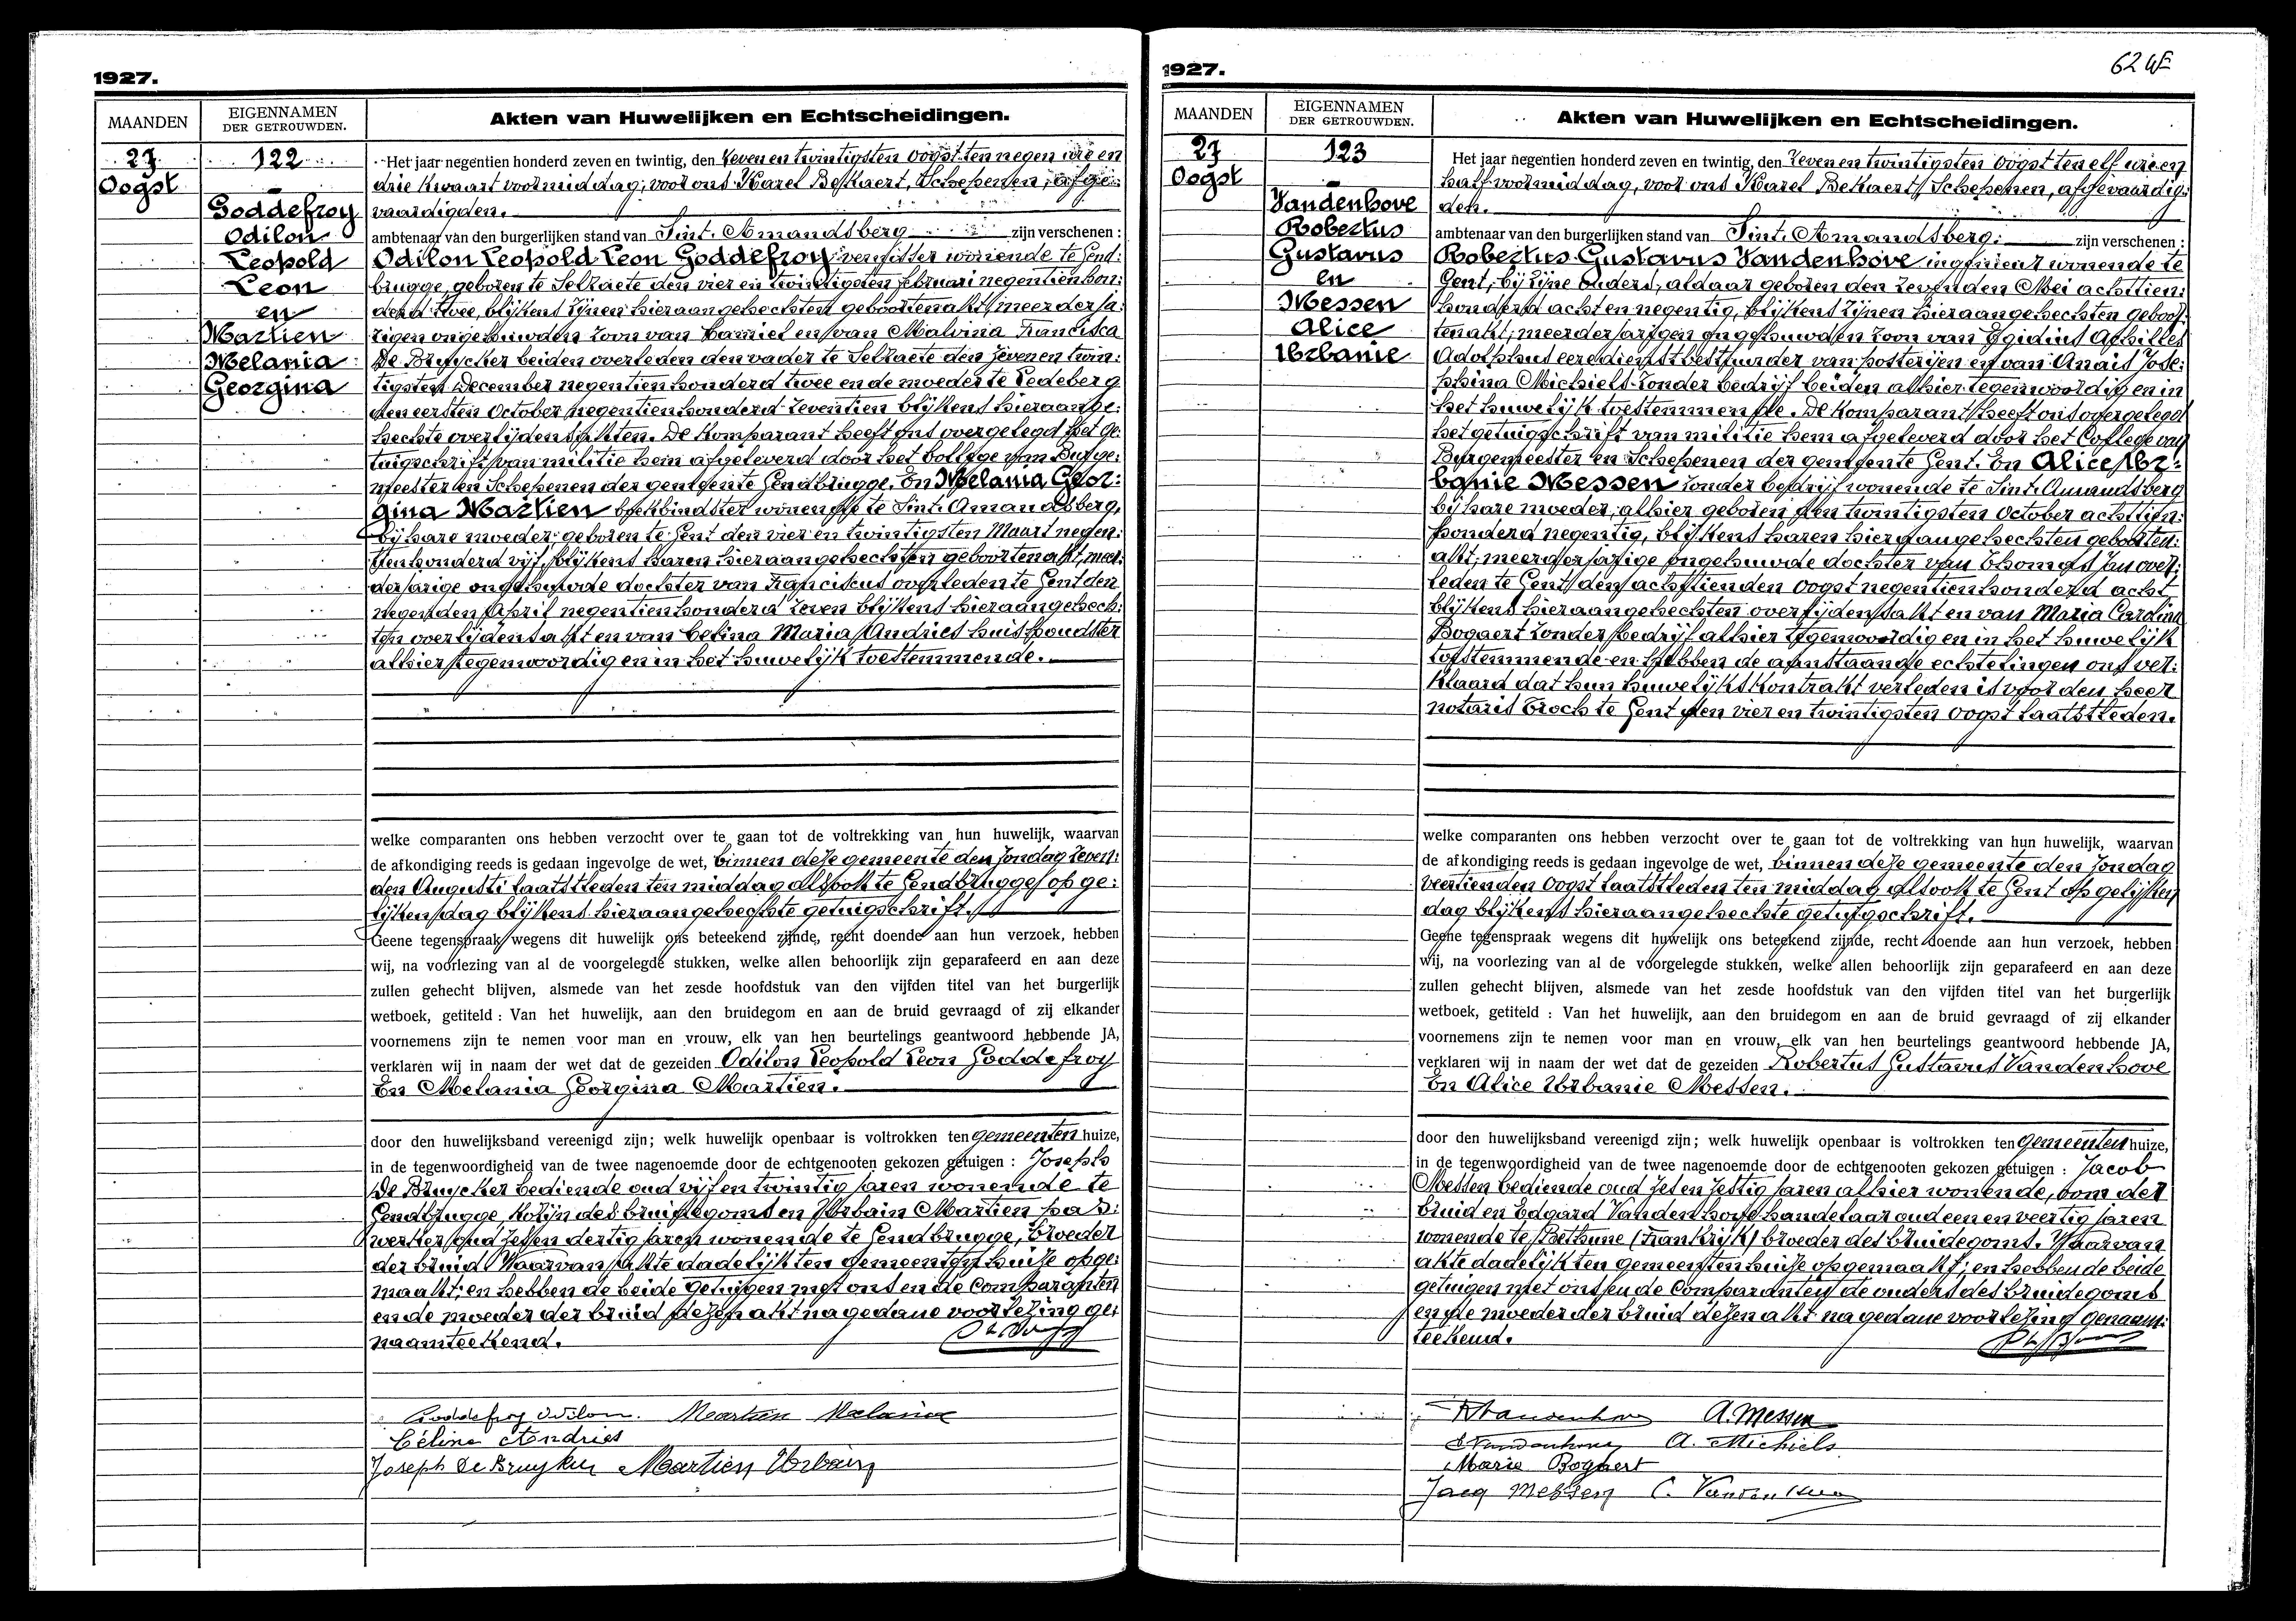 1927.
MAANDEN
EIGENNAMEN
DER GETROUWDEN.
Akten van Huwelijken en Echtscheidingen.
27
Oogst
122
Goddefroy
Odilon
Leopold
Leon
en
Martien
Melania
Georgina
Het jaar negentien honderd zeven en twintig, den zeven en twintigsten oogst ten negen ure en
drie kwaart voormiddag; voor ons Karel Bekaert, Schepenen, afge:
vaardigden.
ambtenaar van den burgerlijken stand van Sint. Amandsberg zijn verschenen :
Odilon Leopold Leon Goddefroy vernisser wonende te Gend:
brugge, geboren te Selzaete den vier en twintigsten februari negentienhon:
derd twee, blijkens zijnen hieraangehechten geboortenakt, meerderja:
rigen ongehuwden zoon van Camiel en van Malvina Francisca
De Bruycker beiden overleden den vader te Selzaete den zeven en twin:
tigsten December negentienhonderd twee en de moeder te Ledeberg
den eersten October negentienhonderd zeventien blijkens hieraange:
hechte overlijdensakten. De komparant heeft ons overgelegd het ge:
tuigschrift van militie hem afgeleverd door het College van Burge:
meester en Schepenen der gemeente Gendbrugge. En Melania Geor:
gina Martien boekbindster wonende te Sint. Amandsberg,
bij hare moeder; geboren te Gent den vier en twintigsten Maart negen:
tienhonderd vijf, blijkens haren hieraangehechten geboortenakt, meer:
derjarige ongehuwde dochter van Franciscus overleden te Gent den
negenden April negentienhonderd zeven blijkens hieraangehech:
ten overlijdensakt en van Celina Maria Andries huishoudster
alhier tegenwoordig en in het huwelijk toestemmende.
welke comparanten ons hebben verzocht over te gaan tot de voltrekking van hun huwelijk, waarvan
de afkondiging reeds is gedaan ingevolge de wet, binnen deze gemeente den zondag zeven:
den Augusti laatstleden ten middag alsook te Gendbrugge op ge:
lijken dag blijkens hieraangehechte getuigschrift.
Geene tegenspraak wegens dit huwelijk ons beteekend zijnde, recht doende aan hun verzoek, hebben
wij, na voorlezing van al de voorgelegde stukken, welke allen behoorlijk zijn geparafeerd en aan deze
zullen gehecht blijven, alsmede van het zesde hoofdstuk van den vijfden titel van het burgerlijk
wetboek, getiteld : Van het huwelijk, aan den bruidegom en aan de bruid gevraagd of zij elkander
voornemens zijn te nemen voor man en vrouw, elk van hen beurtelings geantwoord hebbende JA,
verklaren wij in naam der wet dat de gezeiden Odilon Leopold Leon Goddefroy
En Melania Georgina Martien.
door den huwelijksband vereenigd zijn; welk huwelijk openbaar is voltrokken ten gemeenten huize,
in de tegenwoordigheid van de twee nagenoemde door de echtgenooten gekozen getuigen : Joseph
De Bruycker bediende oud vijf en twintig jaren wonende te
Gendbrugge, kozijn des bruidegoms en Urbain Martien
werker oud zes en dertig jaren wonende te Gendbrugge, broeder
der bruid Waarvan akte dadelijk ten gemeenten huize opge:
maakt; en hebben de beide getuigen met ons en de Comparanten
en de moeder der bruid dezen akt na gedane voorlezing ge:
naamteekend.
Goddefroy Odilon. Martien Melanie
Céline Andries
Joseph De Bruyker Martien Urbain
1927.
62
MAANDEN
EIGENNAMEN
DER GETROUWDEN.
Akten van Huwelijken en Echtscheidingen.
27
Oogst
123
Vandenhove
Robertus
Gustavus
en
Messen
Alice
Urbanie
Het jaar negentien honderd zeven en twintig, den zeven en twintigsten oogst ten elf ure en
half voormiddag, voor ons Karel Bekaert, Schepenen, afgevaardig:
den.
ambtenaar van den burgerlijken stand van Sint. Amandsberg: zijn verschenen :
Robertus Gustavus Vandenhove ingenieur wonende te
Gent, bij zijne ouders, aldaar geboren den zevenden Mei achttien:
honderd acht en negentig, blijkens zijnen hieraangehechten geboor:
tenakt; meerderjarigen ongehuwden zoon van Egidius Achilles
Adolphus eeredienstbestuurder van posterijen en van Anais Jose:
phina Michiels zonder bedrijf beiden alhier tegenwoordig en in
het huwelijk toestemmende. De komparant heeft ons overgelegd
het getuigschrift van militie hem afgeleverd door het College van
Burgemeester en Schepenen der gemeente Gent. En Alice Ur:
banie Messen zonder bedrijf wonende te Sint. Amandsberg
bij hare moeder, alhier geboren den twintigsten October achttien:
honderd negentig, blijkens haren hieraangehechten geboorten:
akt; meerderjarige ongehuwde dochter van Thomas Jan over:
leden te Gent den achttienden oogst negentienhonderd acht
blijkens hieraangehechten overlijdensakt en van Maria Carolina
Bogaert zonder bedrijf alhier tegenwoordig en in het huwelijk
toestemmende en hebben de aanstaande echtelingen ons ver:
klaard dat hun huwelijkskontrakt verleden is voor den heer
notaris Troch te Gent den vier en twintigsten oogst laatstleden.
welke comparanten ons hebben verzocht over te gaan tot de voltrekking van hun huwelijk, waarvan
de afkondiging reeds is gedaan ingevolge de wet, binnen deze gemeente den zondag
veertienden oogst laatstleden ten middag alsook te Gent op gelijken
dag blijkens hieraangehechte getuigschrift.
Geene tegenspraak wegens dit huwelijk ons beteekend zijnde, recht doende aan hun verzoek, hebben
wij, na voorlezing van al de voorgelegde stukken, welke allen behoorlijk zijn geparafeerd en aan deze
zullen gehecht blijven, alsmede van het zesde hoofdstuk van den vijfden titel van het burgerlijk
wetboek, getiteld : Van het huwelijk, aan den bruidegom en aan de bruid gevraagd of zij elkander
voornemens zijn te nemen voor man en vrouw, elk van hen beurtelings geantwoord hebbende JA,
verklaren wij in naam der wet dat de gezeiden Robertus Gustavus Vandenhove
En Alice Urbanie Messen.
door den huwelijksband vereenigd zijn; welk huwelijk openbaar is voltrokken ten gemeenten huize,
in de tegenwoordigheid van de twee nagenoemde door de echtgenooten gekozen getuigen : Jacob
Messen bediende oud zes en zestig jaren alhier wonende, oom der
bruid en Edgard Vandenhove handelaar oud een en veertig jaren
wonende te Bethune (Frankrijk) broeder des bruidegoms. Waarvan
akte dadelijk ten gemeenten huize opgemaakt; en hebben de beide
getuigen met ons en de Comparanten de ouders des bruidegoms
en de moeder der bruid dezen akt na gedane voorlezing genaam:
teekend.
RVandenhove A. Messen
Vandenhove A. Michiels
Marie Bogaert
Jacq Messen Vandenhove